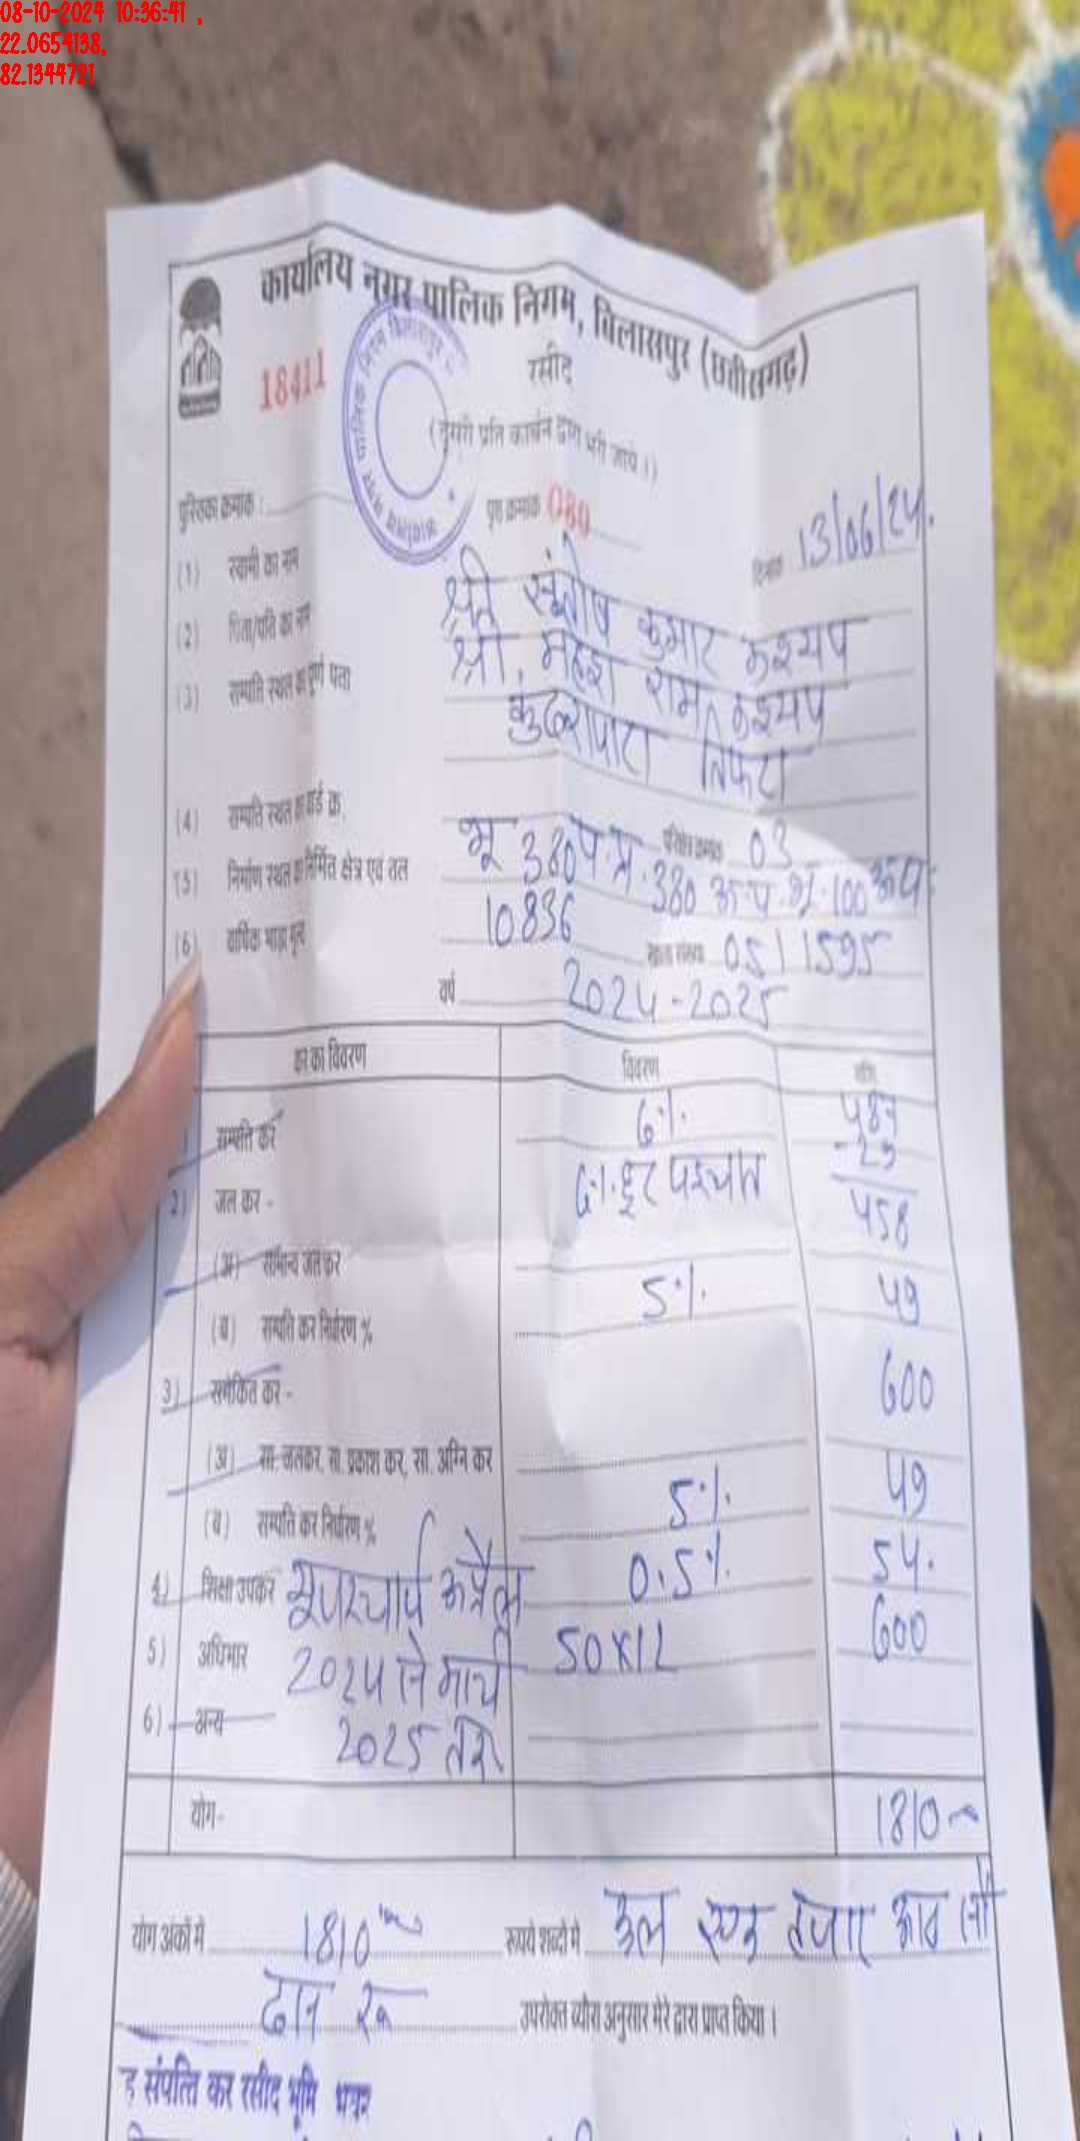 08-10-2024 10:36:41 ,
22.0654138,
82.1344721
कार्यालय नगर पालिक निगम, बिलासपुर (छत्तीसगढ़)
18411
रसीद
(दूसरी प्रति कार्बन द्वारा भरी जाये।)
पुस्तिका क्रमांक : पृष्ठ क्रमांक 080
दिनांक 13/06/24.
(1) स्वामी का नाम श्री संतोष कुमार कश्यप
(2) पिता/पति का नाम श्री. महेश राम कश्यप
(3) सम्पत्ति स्थल का पूर्ण पता तिफरा
(4) सम्पत्ति स्थल का वार्ड क्र. परिक्षेत्र क्रमांक 03
(5) निर्माण स्थल का निर्मित क्षेत्र एवं तल भू 380 प.प्र. 380
(6) वार्षिक भाड़ा मूल्य 10836 खाता संख्या 05/1595
वर्ष 2024-2025
कर का विवरण विवरण राशि
सम्पत्ति कर 6% 487
- 29
2) जल कर - 6% छूट पश्चात 458
(अ) सामान्य जल कर
(ब) सम्पत्ति कर निर्धारण % 5% 49
3) समेकित कर - 600
(अ) सा. जलकर, सा. प्रकाश कर, सा. अग्नि कर
(ब) सम्पत्ति कर निर्धारण % 5% 49
4) शिक्षा उपकर 0.5% 54.
यूजरचार्ज अप्रैल
5) अधिभार 2024 से मार्च 50x12 600
6) अन्य 2025 तक
योग- 1810
योग अंकों में 1810 रूपये शब्दों में कुल एक हजार आठ सौ
दस रू उपरोक्त ब्यौरा अनुसार मेरे द्वारा प्राप्त किया।
संपत्ति कर रसीद भूमि